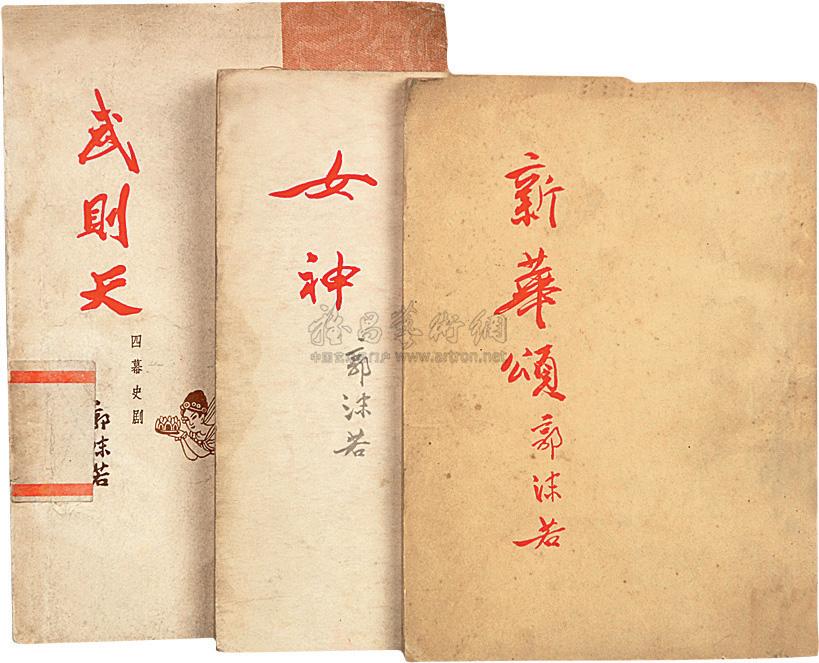 武則天
四幕史劇
郭沫若
女神
郭沫若
新華頌
郭沫若
雅昌藝術網
中国艺术品门户 www.artron.net